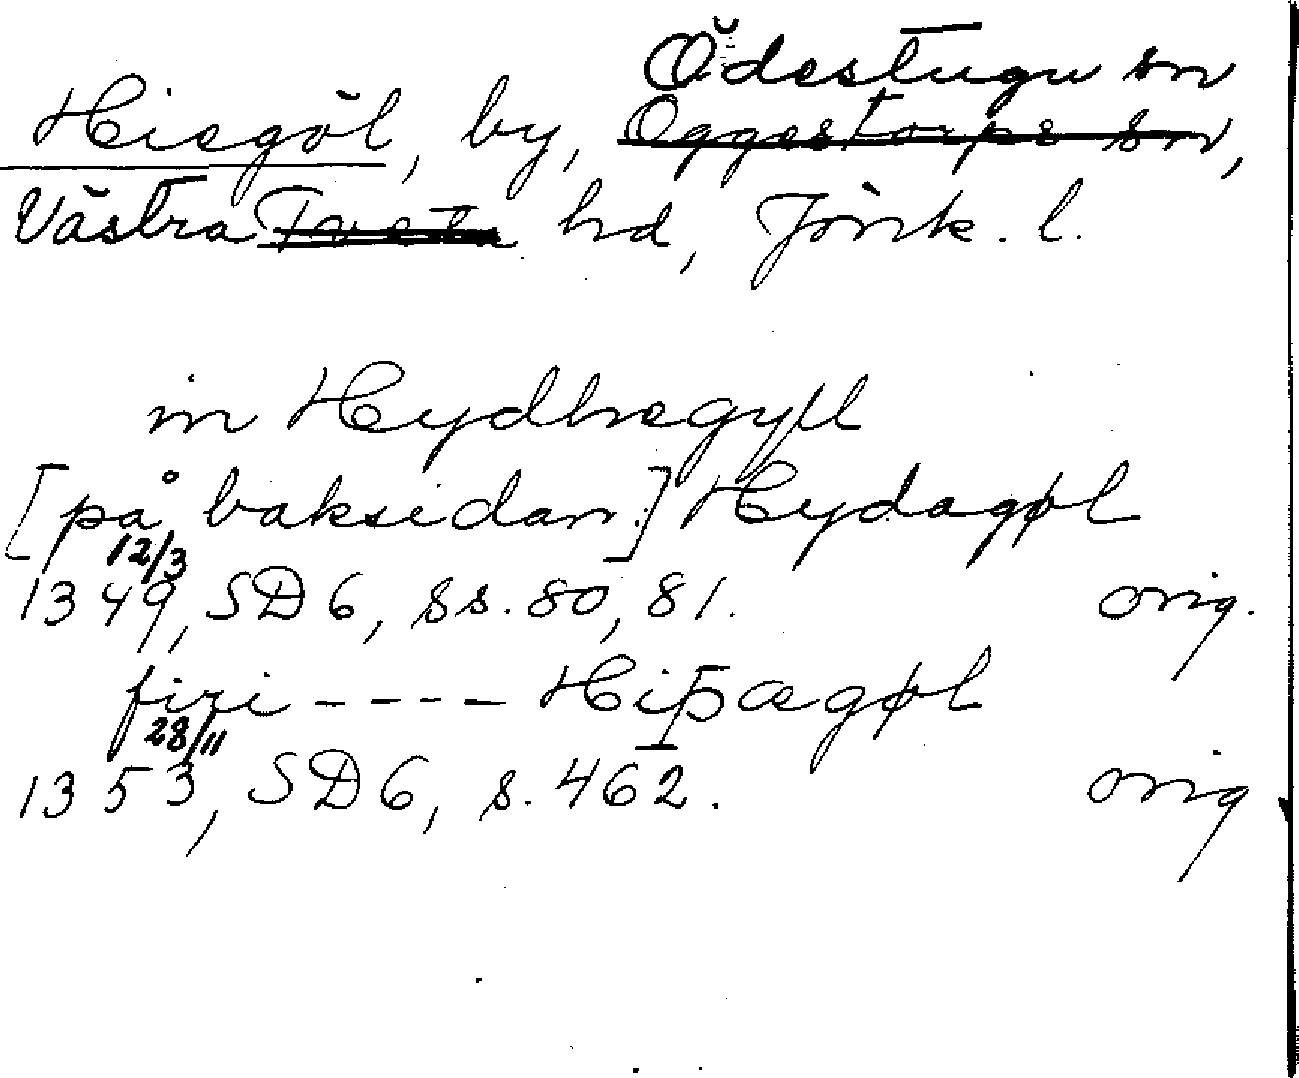 Ödestugu sn
Hisgöl, by, Öggestorps sn,
Västra Tveta hd, Jönk. l.
in Hydhægyll
[på baksidan] Hydagøl
12/3
1349, SD 6, ss. 80, 81. orig.
firi ---- Hiþægøl
28/11
1353, SD 6, s. 462. orig